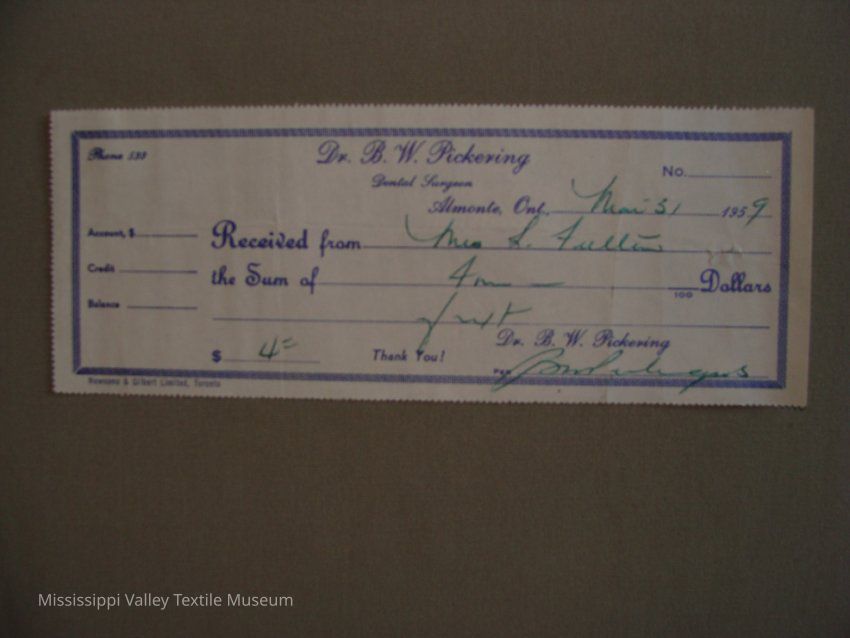 Phone 539
Dr. B. W. Pickering
Dental Surgeon
No.
Almonte, Ont., Mar 31 1959
Account, $
Received from Mrs L. Fulton
Credit
the Sum of Four 100 Dollars
Balance
Dr. B. W. Pickering
$ 4= Thank You!
Per
Limited, Toronto
Mississippi Valley Textile Museum